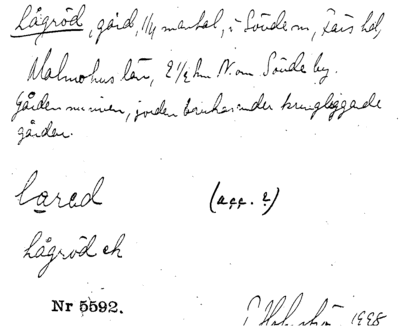 Lågröd, gård, 1/4 mantal, i Sövde sn, Färs hd,
Malmöhus län, 2 1/2 km N. om Sövde by.
Gården numera riven, jorden brukas under kringliggade
gårdar.
(acc. 2)
Lågröd ek
Nr 5592.
1998